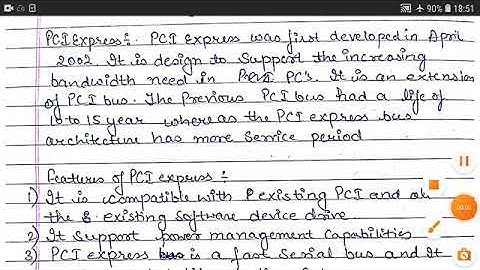 90% 18:51
PCI Express :- PCI Express was first developed in April
2002. It is design to support the increasing
bandwidth need in PC's. It is an extension
of PCI bus. The Previous PCI bus had a life of
10 to 15 year whereas the PCI express bus
architecture has more service period
Features of PCI express :-
1) It is compatible with existing PCI and
the existing software device drive
2) It support power management capabilities
3) PCI express bus is a fast serial bus and it